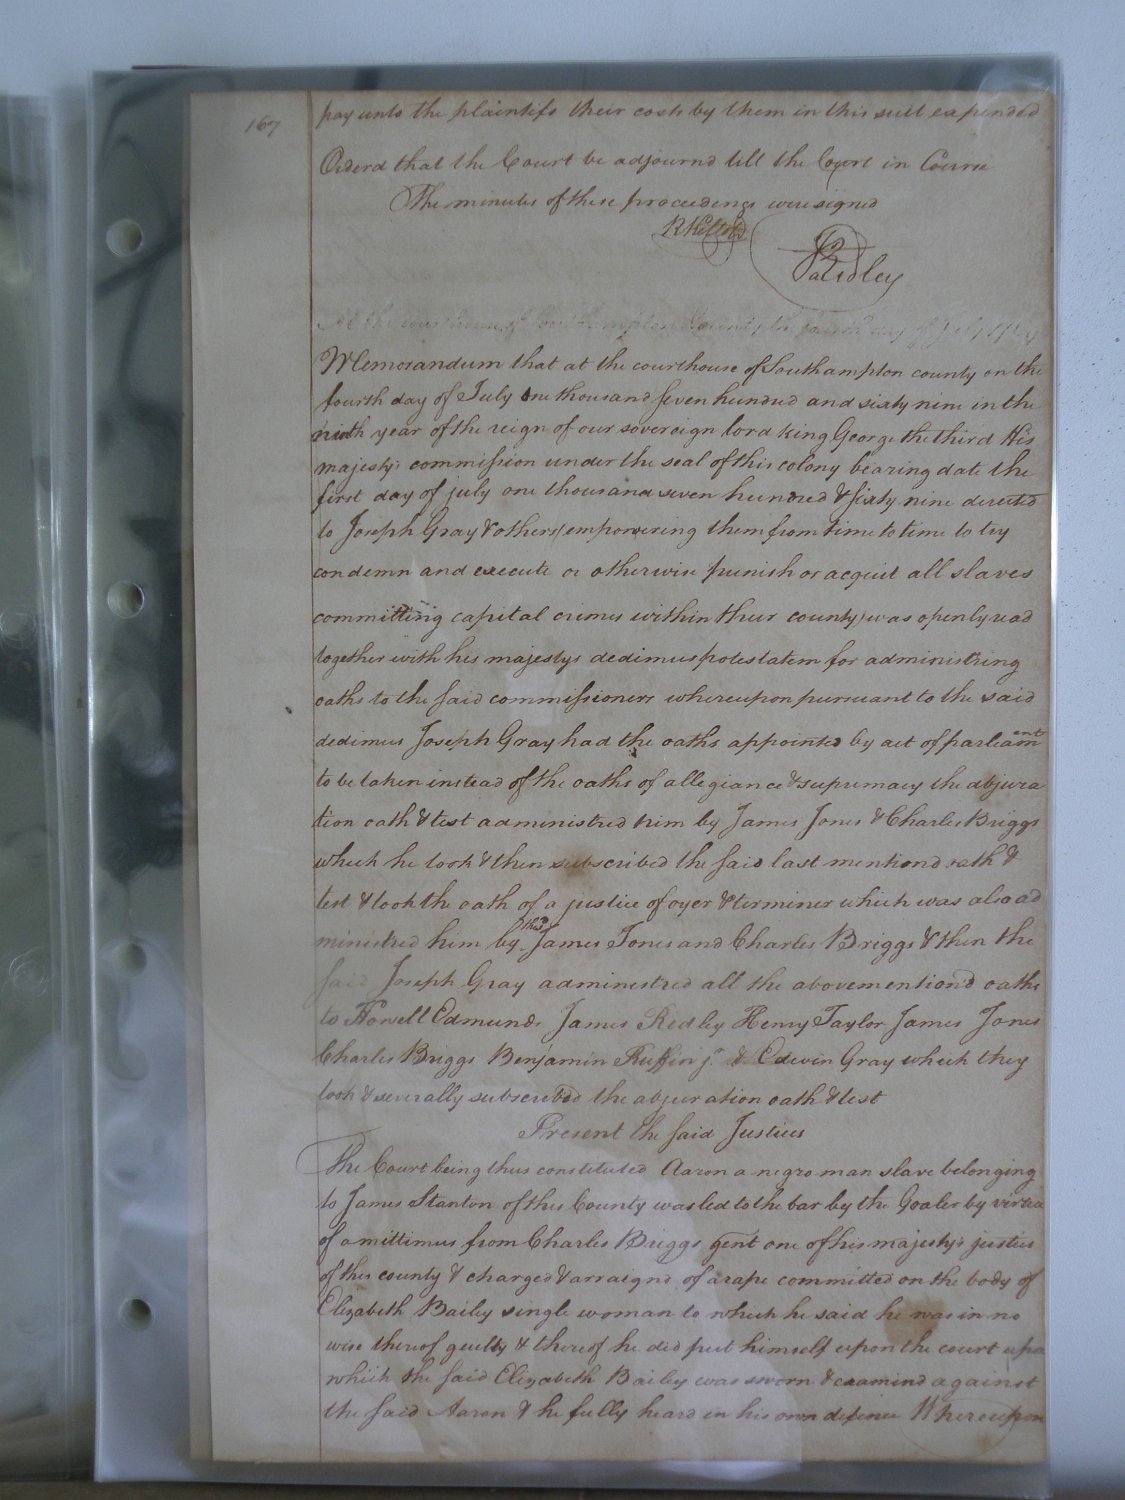 167
pay unto the plaintifs their costs by them in this suit expended
Orderd that the Court be adjournd till the Court in Course
The minutes of these proceedings were signed
Ridley
At the courthouse of Southampton County the fourth day of July 1769
Memorandum that at the courthouse of Southampton county on the
fourth day of July one thousand seven hundred and sixty nine in the
ninth year of the reign of our sovereign lord king George the third His
majesty's commission under the seal of this colony bearing date the
first day of july one thousand seven hundred & sixty nine directed
to Joseph Gray & others (empowering them from time to time to try
condemn and execute or otherwise punish or acquit all slaves
committing capital crimes within their county) was openly read
together with his majestys dedimus potestatem for administring
oaths to the said commissioners whereupon pursuant to the said
dedimus Joseph Gray had the oaths appointed by act of parliament
to be taken instead of the oaths of allegiance & supremacy the abjura
tion oath & test administred him by James Jones & Charles Briggs
which he took & then subscribed the said last mentiond oath &
test & took the oath of a justice of oyer & terminer which was also ad
ministred him by the sd James Jones and Charles Briggs & then the
said Joseph Gray administred all the abovemention'd oaths
to Howell Edmunds James Ridley Henry Taylor James Jones
Charles Briggs Benjamin Ruffin jr & Edwin Gray which they
took & severally subscribed the abjuration oath & test
Present the said Justices
The Court being thus constituted Aaron a negro man slave belonging
to James Stanton of this County was led to the bar by the Goaler by virtue
of a mittimus from Charles Briggs gent one of his majesty's justices
of this county & charged & arraignd of a rape committed on the body of
Elizabeth Bailey single woman to which he said he was in no
wise thereof guilty & thereof he did put himself upon the court upon
which the said Elizabeth Bailey was sworn & examind against
the said Aaron & he fully heard in his own defence Whereupon